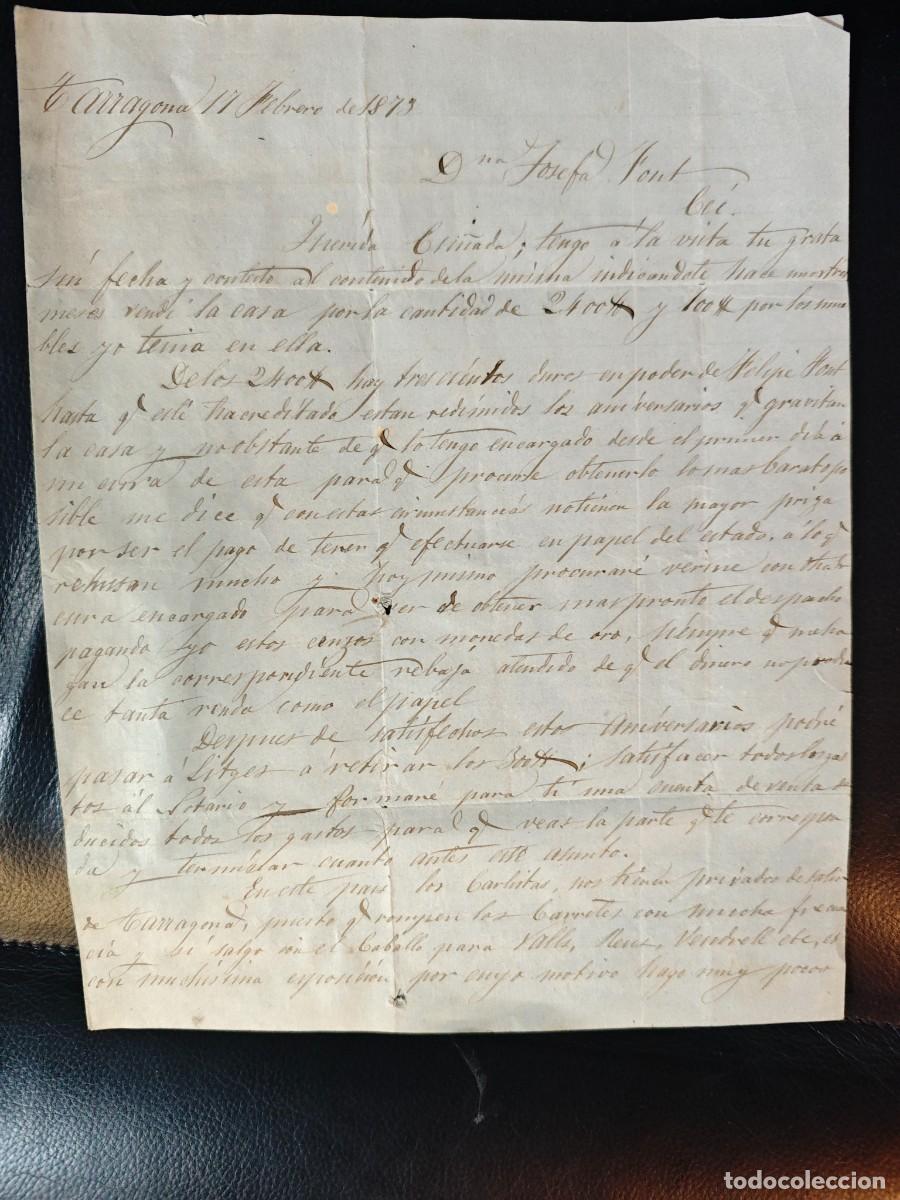 Tarragona 17 Febrero de 1873
Dna Josefa Font
Querida Cuñada; tengo á la vista tu grata
sin fecha y contesto al contenido de la misma indicandote hace unos tres
meses vendí la casa por la cantidad de 2400 y 100 por los mue
bles yo tenia en ella.
De los 2400 hay trescientos duros en poder de Felipe Font
hasta q esté hacreditado estan redimidos los aniversarios q gravitan
la casa y no obstante de q lo tengo encargado desde el primer dia á
mi cura de esta para q procurse obtenerlo lo mas barato po
sible me dice q con estas circumstancias no tienen la mayor priza
por ser el pago de tener q efectuarse en papel del estado, á lo q
rehussan mucho y hoy mismo procuraré verme con
cura encargado para ver de obtener mas pronto el despacho
pagando yo estos cenzos con monedas de oro, siempre q me ha
gan la correspondiente rebaja atendido de q el dinero no produ
ce tanta renda como el papel
Despues de satisfechos estos Aniversarios podré
pasar á Sitges á retirar los 300; satisfacer todos los gas
tos al Notario y formaré para tí una cuenta de venta de
ducidos todos los gastos para q veas la parte q te correspon
da y terminar cuanto antes este asunto.
En este pais los Carlistas, nos tienen privados de salir
de Tarragona, puesto q rompen las Carretes con mucha frecuen
cia y si salgo con el Caballo para Valls, Reus, Vendrell etc, es
con muchisima exposición por cuyo motivo hago muy pocos
todocoleccion